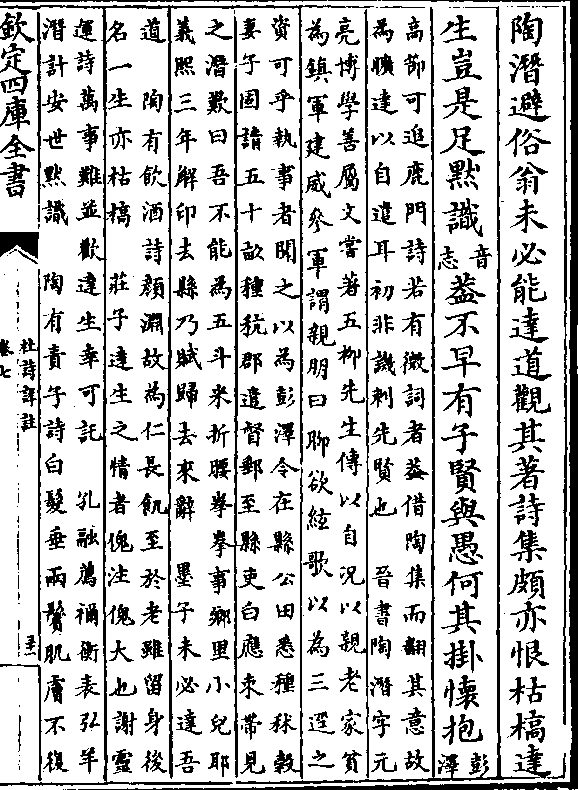 陶潛避俗翁未必能達道觀其著詩集頗亦恨枯槁達
生豈是足默識
音
志
蓋不早有子賢與愚何其掛懷抱
彭
澤
高節可追鹿門詩若有微詞者蓋借陶集而翻其意故
為曠達以自遣耳初非譏刺先賢也　晉書陶潛字元
亮博學善屬文嘗著五柳先生傳以自況以親老家貧
為鎮軍建威參軍謂親朋曰聊欲絃歌以為三逕之
資可乎執事者聞之以為彭澤令在縣公田悉種秫穀
妻子固請五十畝種秔郡遣督郵至縣吏白應束帶見
之潛歎曰吾不能為五斗米折腰拳拳事鄉里小兒耶
義熙三年解印去縣乃賦歸去來辭　墨子未必達吾
道　陶有飲酒詩顏淵故為仁長飢至於老雖留身後
名一生亦枯槁　莊子達生之情者傀注傀大也謝靈
運詩萬事難並歡達生幸可託　孔融薦禰衡表弘羊
潛計安世默識　陶有責子詩白髮垂兩鬢肌膚不復
欽定四庫全書
杜詩詳註
卷七